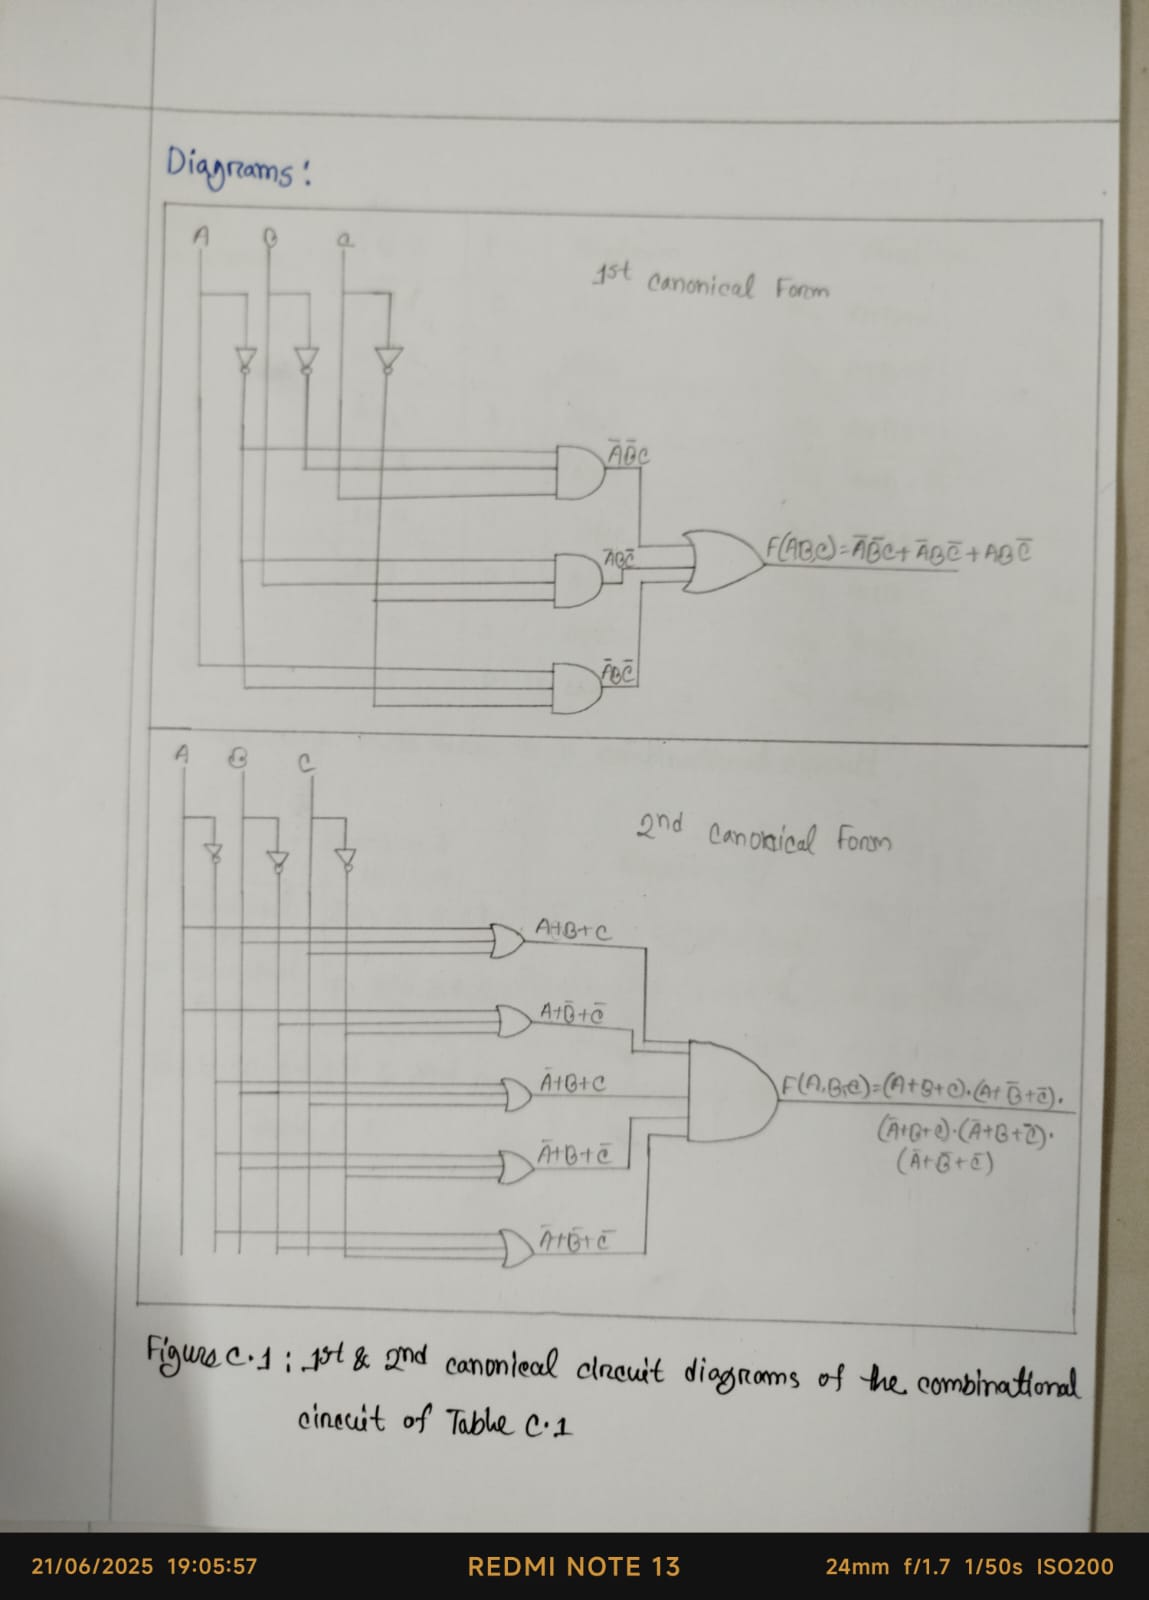 Diagrams:
A B C
1st Canonical Form
A̅B̅C
A̅BC̅
F(A,B,C)=A̅B̅C+A̅BC̅+ABC̅
A̅BC̅
A B C
2nd Canonical Form
A+B+C
A+B̅+C̅
A̅+B+C
F(A,B,C)=(A+B+C).(A+B̅+C̅).
(A̅+B+C).(A̅+B+C̅).
A̅+B+C̅
(A̅+B̅+C̅)
A̅+B̅+C̅
Figure C.1 : 1st & 2nd canonical circuit diagrams of the combinational
circuit of Table C.1
21/06/2025 19:05:57 REDMI NOTE 13 24mm f/1.7 1/50s ISO200